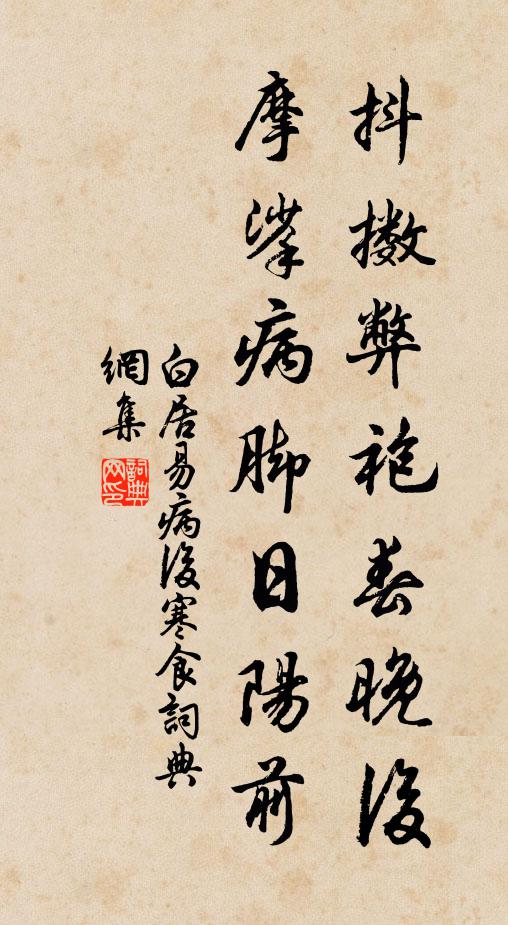 抖擻弊袍春晚後
摩挲病脚日陽前
白居易病後寒食詞典
網集
詞典網印